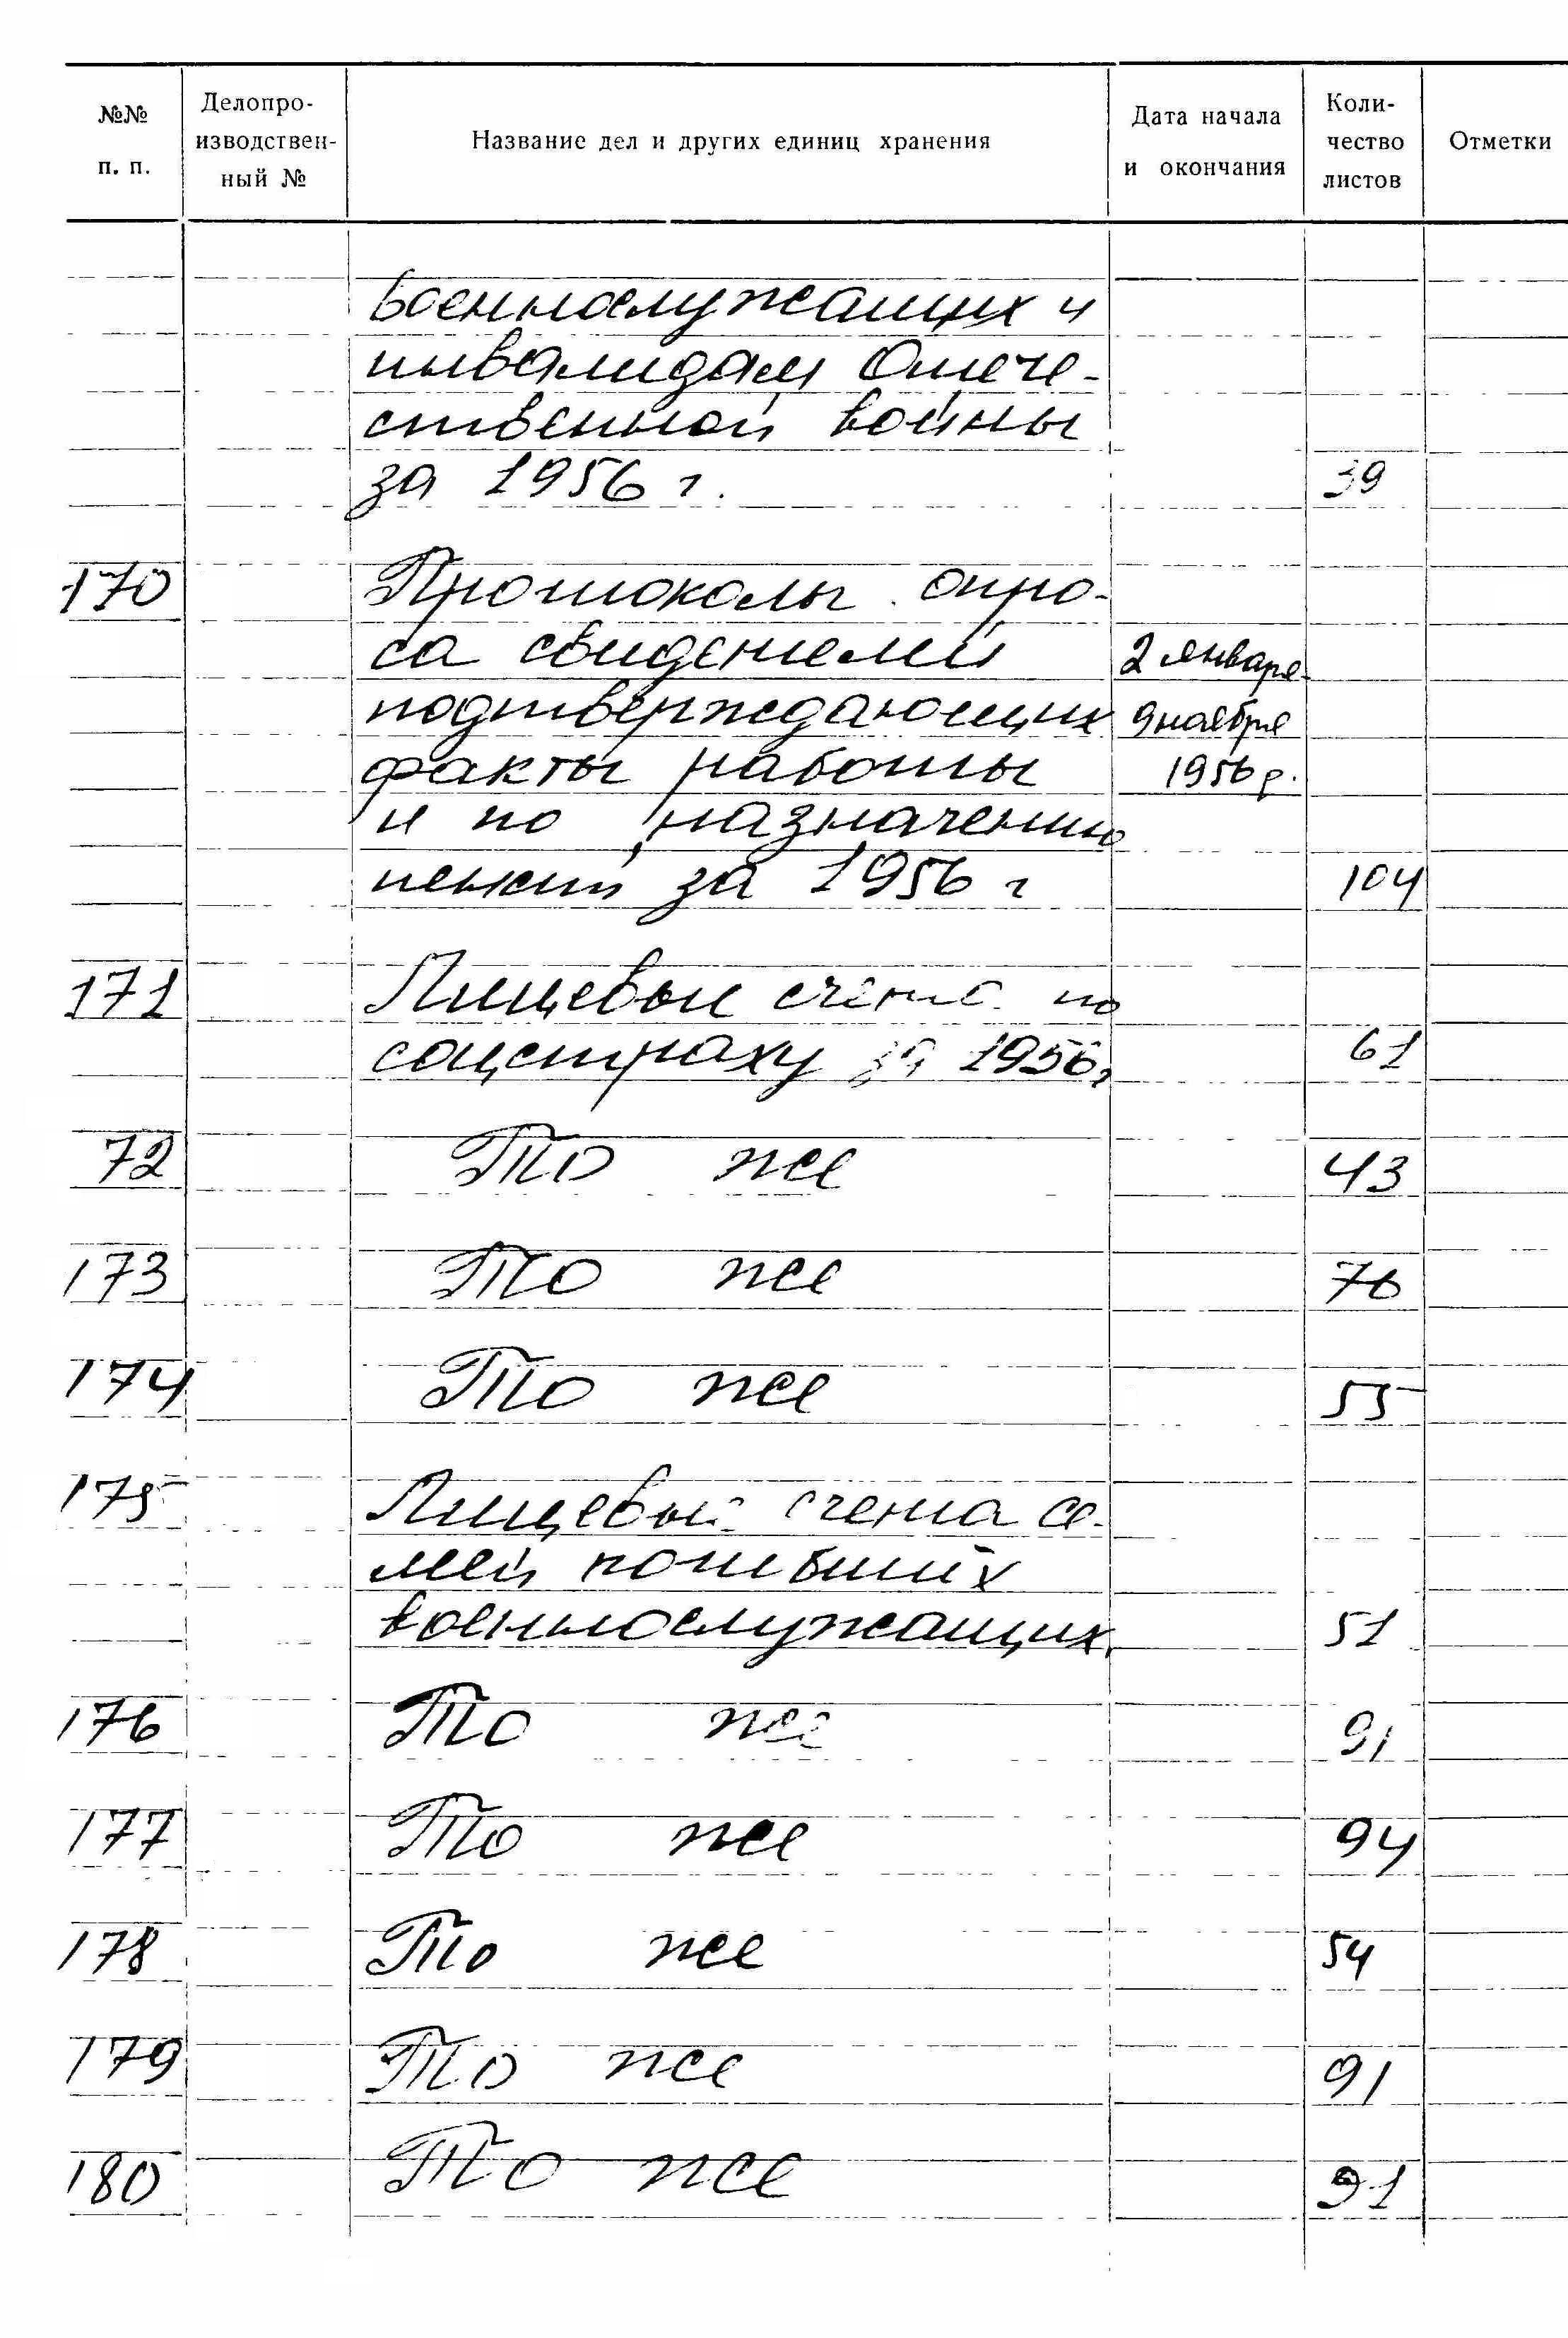 №№ п. п.
Делопро-
изводствен-
ный №
Название дел и других единиц хранения
Дата начала
и окончания
Коли-
чество
листов
Отметки
военнослужащих и
инвалидам Отече-
ственной войны
за 1956 г. 39
170 Протоколы опро-
са свидетелей 2 января-
подтверждающих 9 ноября
факты работы 1956 г.
и по назначению
пенсий за 1956 г 104
171 Лицевые счета по
соцстраху за 1956 г 61
72 То же 43
173 То же 76
174 То же 55
175 Лицевые счета се-
мей погибших
военнослужащих. 51
176 То же 91
177 То же 94
178 То же 54
179 То же 91
180 То же 91